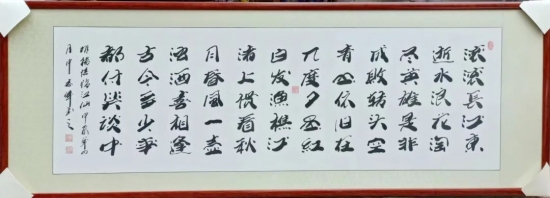 滚滚长江東
逝水浪花淘
尽英雄是非
成败转头空
青山依旧在
几度夕阳红
白发渔樵江
渚上惯看秋
月春风一壶
浊酒喜相逢
古今多少事
都付笑谈中
明杨慎临江仙甲辰